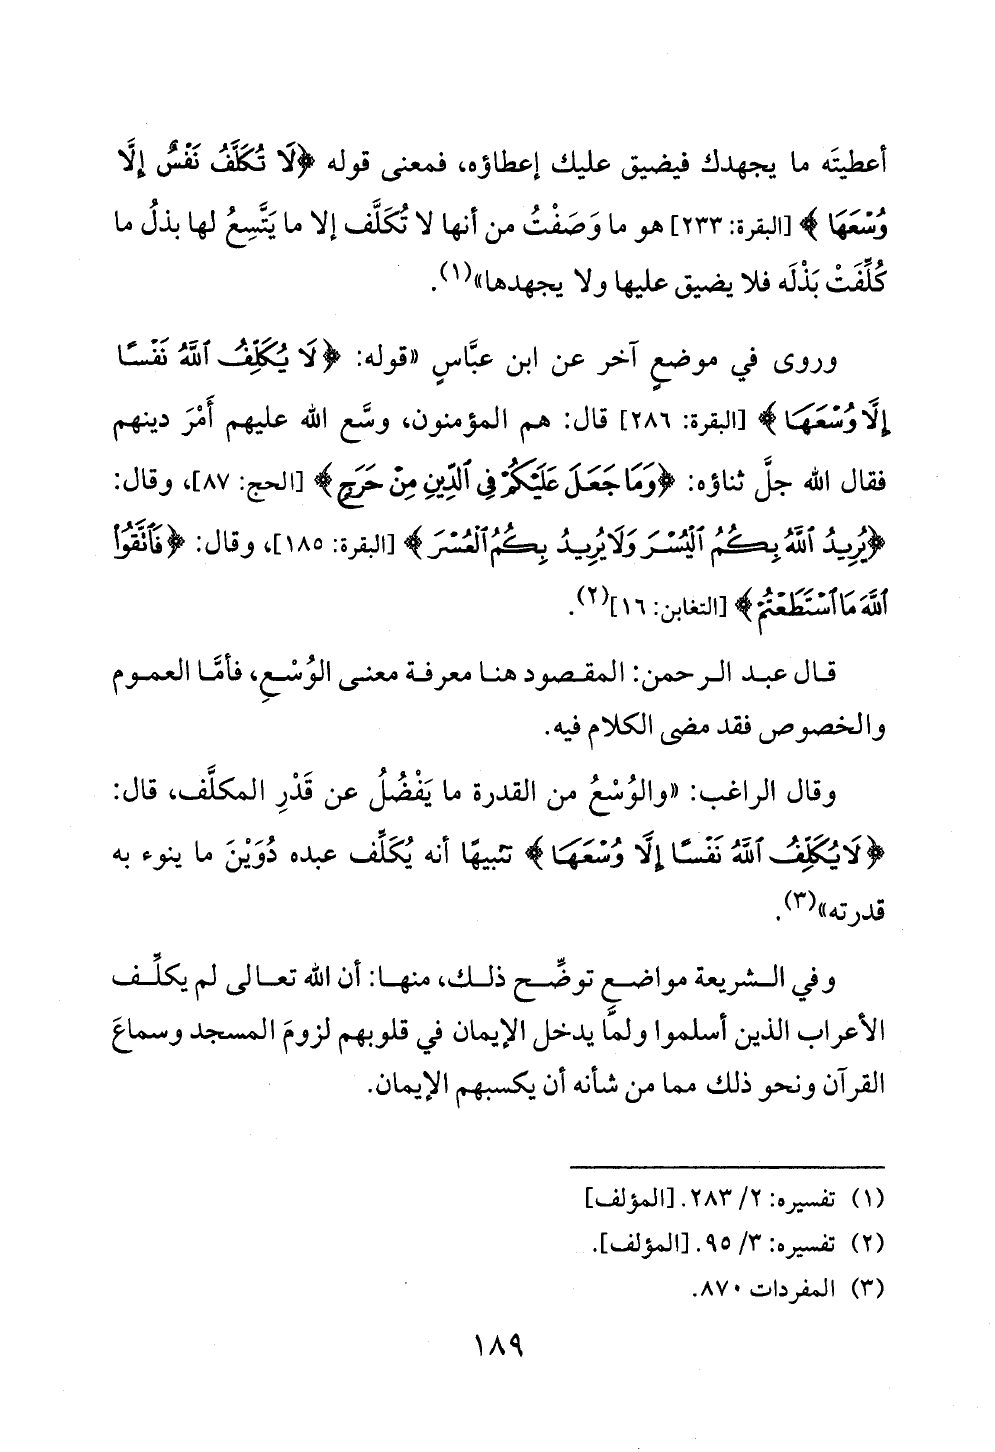 أعطيتَه ما يجهدك فيضيق عليك إعطاؤه، فمعنى قوله ﴿لَا تُكَلَّفُ نَفْسٌ إِلَّا
وُسْعَهَا﴾ [البقرة: ٢٣٣] هو ما وَصَفْتُ من أنها لا تُكَلَّف إلا ما يَتَّسِعُ لها بذلُ ما
كُلِّفَتْ بَذْلَه فلا يضيق عليها ولا يجهدها»(١).
وروى في موضعٍ آخر عن ابن عبَّاسٍ «قوله: ﴿لَا يُكَلِّفُ ٱللَّهُ نَفْسًا
إِلَّا وُسْعَهَا﴾ [البقرة: ٢٨٦] قال: هم المؤمنون، وسَّع الله عليهم أَمْرَ دينهم
فقال الله جلَّ ثناؤه: ﴿وَمَا جَعَلَ عَلَيْكُمْ فِي ٱلدِّينِ مِنْ حَرَجٍ﴾ [الحج: ٨٧]، وقال:
﴿يُرِيدُ ٱللَّهُ بِكُمُ ٱلْيُسْرَ وَلَا يُرِيدُ بِكُمُ ٱلْعُسْرَ﴾ [البقرة: ١٨٥]، وقال: ﴿فَٱتَّقُوا۟
ٱللَّهَ مَا ٱسْتَطَعْتُمْ﴾ [التغابن: ١٦](٢).
قال عبد الرحمن: المقصود هنا معرفة معنى الوُسْعِ، فأمَّا العموم
والخصوص فقد مضى الكلام فيه.
وقال الراغب: «والوُسْعُ من القدرة ما يَفْضُلُ عن قَدْرِ المكلَّف، قال:
﴿لَا يُكَلِّفُ ٱللَّهُ نَفْسًا إِلَّا وُسْعَهَا﴾ تنبيهًا أنه يُكَلِّف عبده دُوَيْنَ ما ينوء به
قدرته»(٣).
وفي الشريعة مواضع توضِّح ذلك، منها: أن الله تعالى لم يكلِّف
الأعراب الذين أسلموا ولمَّا يدخل الإيمان في قلوبهم لزومَ المسجد وسماعَ
القرآن ونحو ذلك مما من شأنه أن يكسبهم الإيمان.
(١) تفسيره: ٢/ ٢٨٣. [المؤلف]
(٢) تفسيره: ٣/ ٩٥. [المؤلف].
(٣) المفردات ٨٧٠.
١٨٩